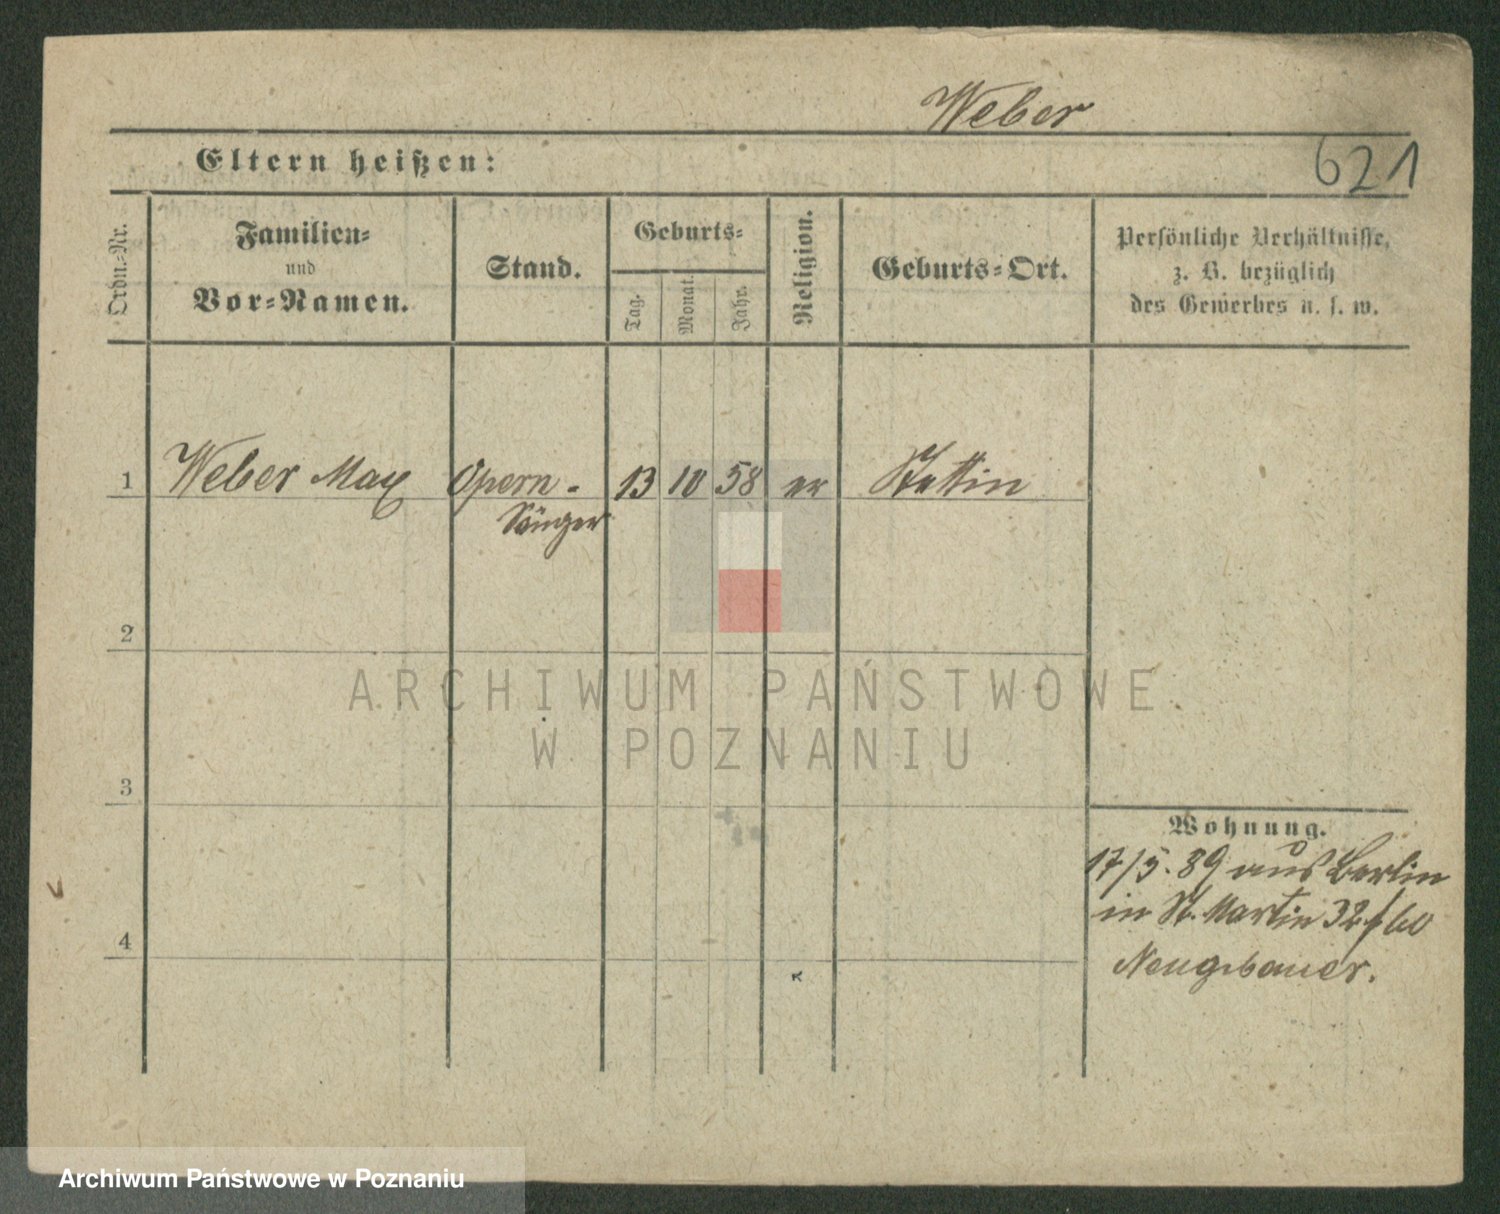 Weber
Eltern heißen:
621
Ordn.-Nr.
Familien-
und
Vor-Namen.
Stand.
Geburts-
Tag.
Monat.
Jahr.
Religion.
Geburts-Ort.
Persönliche Verhältnisse,
z. B. bezüglich
des Gewerbes u. s. w.
1 Weber Max Opern- 13 10 58 Stettin
Sänger
2
3
4
Wohnung.
17/5. 89 aus Berlin
in St. Martin 32
Neugebauer.
ARCHIWUM PAŃSTWOWE
W POZNANIU
Archiwum Państwowe w Poznaniu